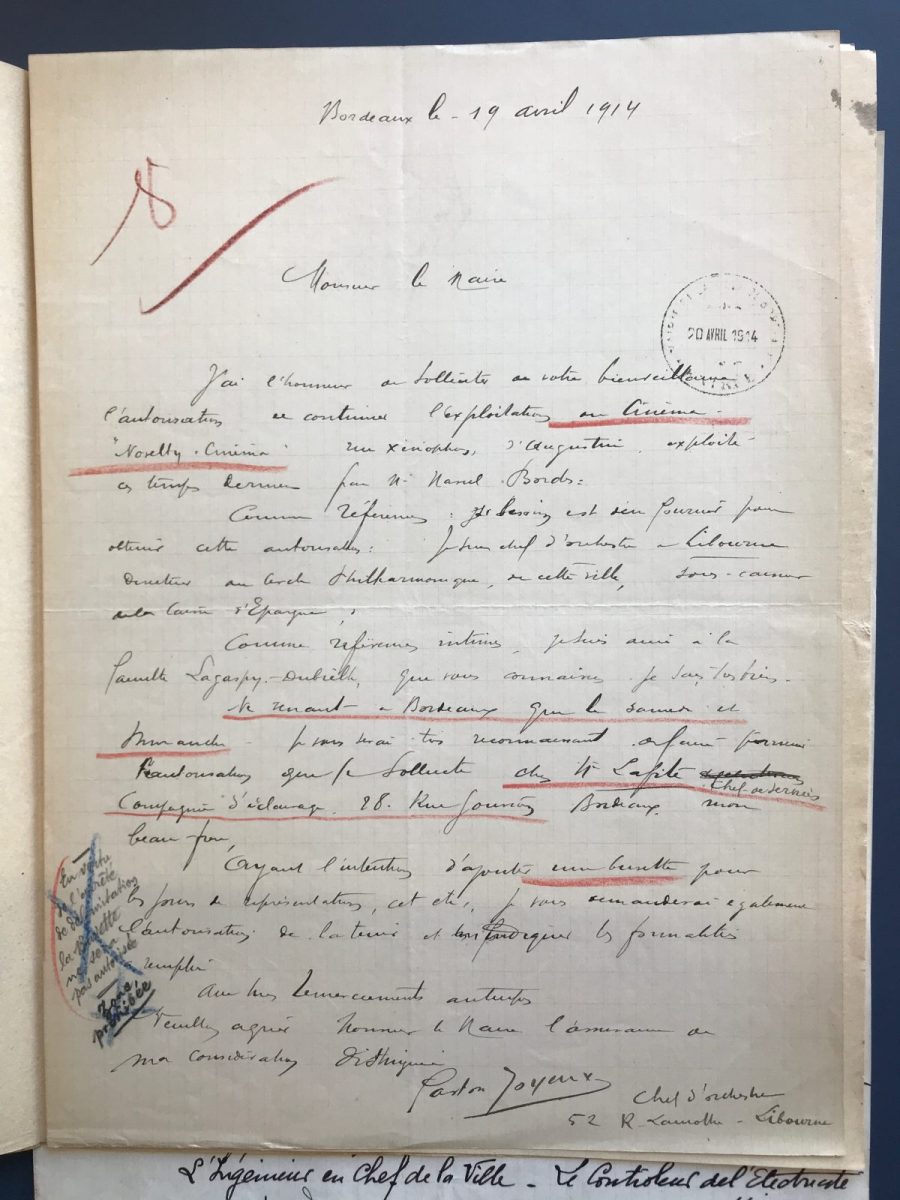 Bordeaux le - 19 avril 1914
Monsieur le Maire
20 AVRIL 1914
J'ai l'honneur de solliciter de votre bienveillance
l'autorisation de continuer l'exploitation du Cinéma -
"Novelty-Cinéma" rue St Augustin, exploité
ces temps derniers par Mr Marcel Bordes
Comme références : besoin est d'en fournir pour
obtenir cette autorisation : je suis chef d'orchestre à Libourne
Directeur du Cercle Philharmonique, de cette ville, sous-caissier
de la Caisse d'Epargne,
Comme références intimes, je suis ami à la
famille que vous connaissez je sais, très bien.
Ne venant à Bordeaux que le samedi et
Dimanche - je vous serai très reconnaissant de faire parvenir
l'autorisation que je sollicite chez Mr Lafite
Chef de service
Compagnie d'éclairage, 28. Rue Bordeaux, mon
beau-frère,
Ayant l'intention d'ajouter une buvette pour
les jours de représentation, cet été, je vous demanderai également
l'autorisation de la tenir et les formalités
à remplir
En vertu
de l'arrêté
de délimitation
la buvette
ne sera
pas autorisée
Zone
prohibée
Avec mes remerciements anticipés
Veuillez agréer Monsieur le Maire l'assurance de
ma considération Distinguée
Gaston Joyeux
Chef d'orchestre
52 R. Lamothe - Libourne
L'Ingénieur en Chef de la Ville - Le Controleur de l'Electricité